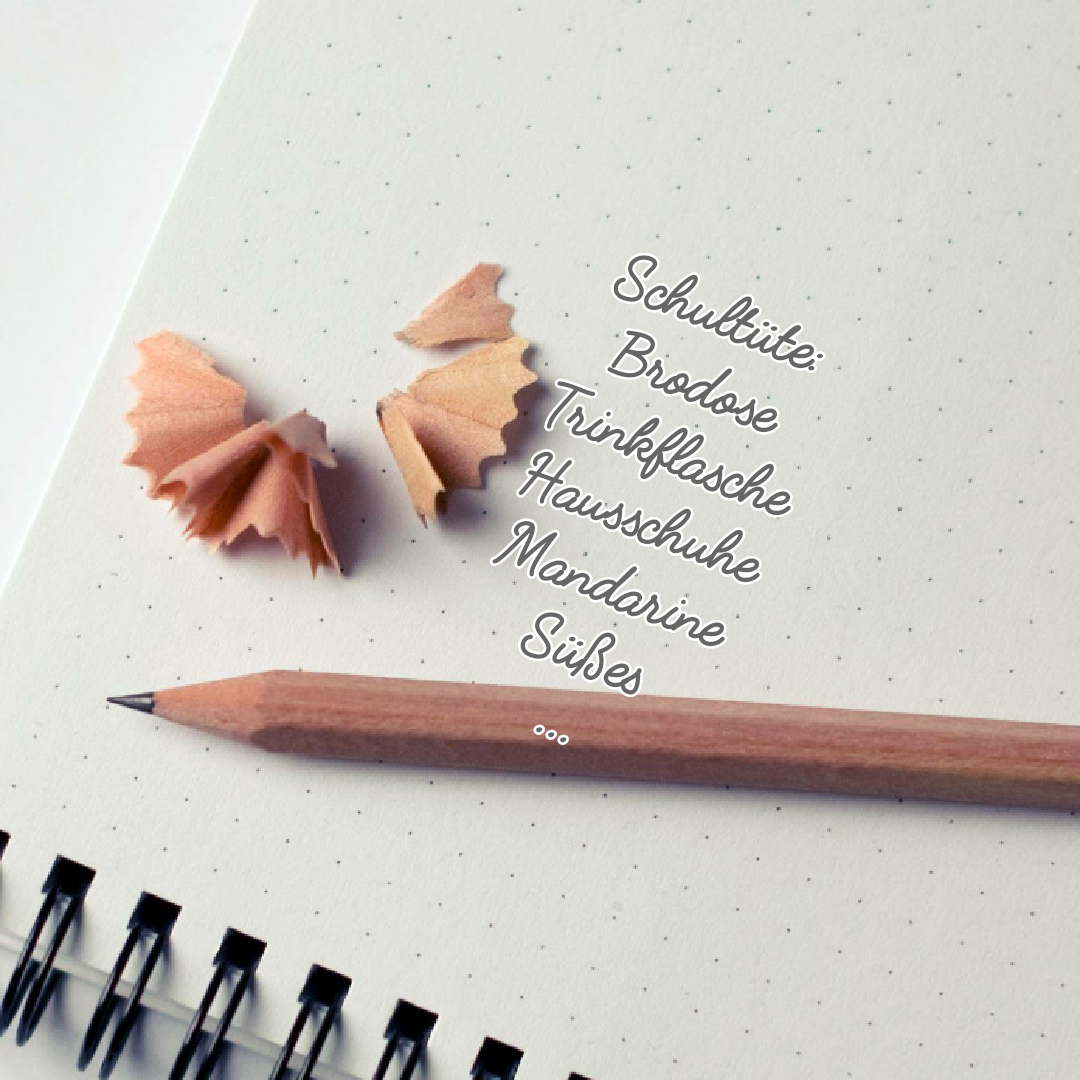 Schultüte:
Brodose
Trinkflasche
Hausschuhe
Mandarine
Süßes
...